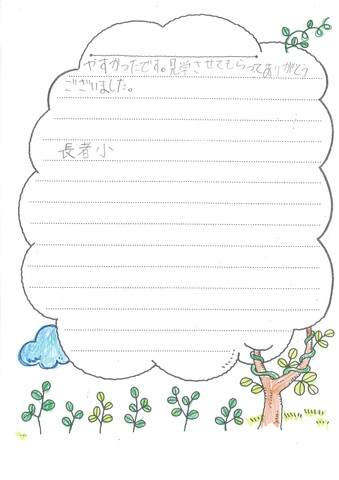 やすかったです。見学させてもらってありがとう
ございました。
長者小